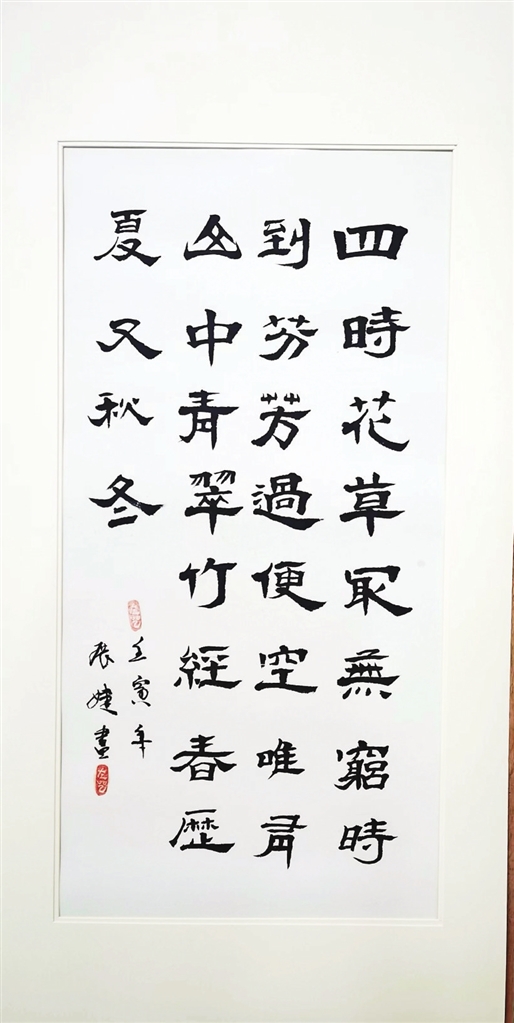 四時花草冣無窮時
到芬芳過便空唯有
山中青翠竹經春歷
夏又秋冬
壬寅年
張婕畫